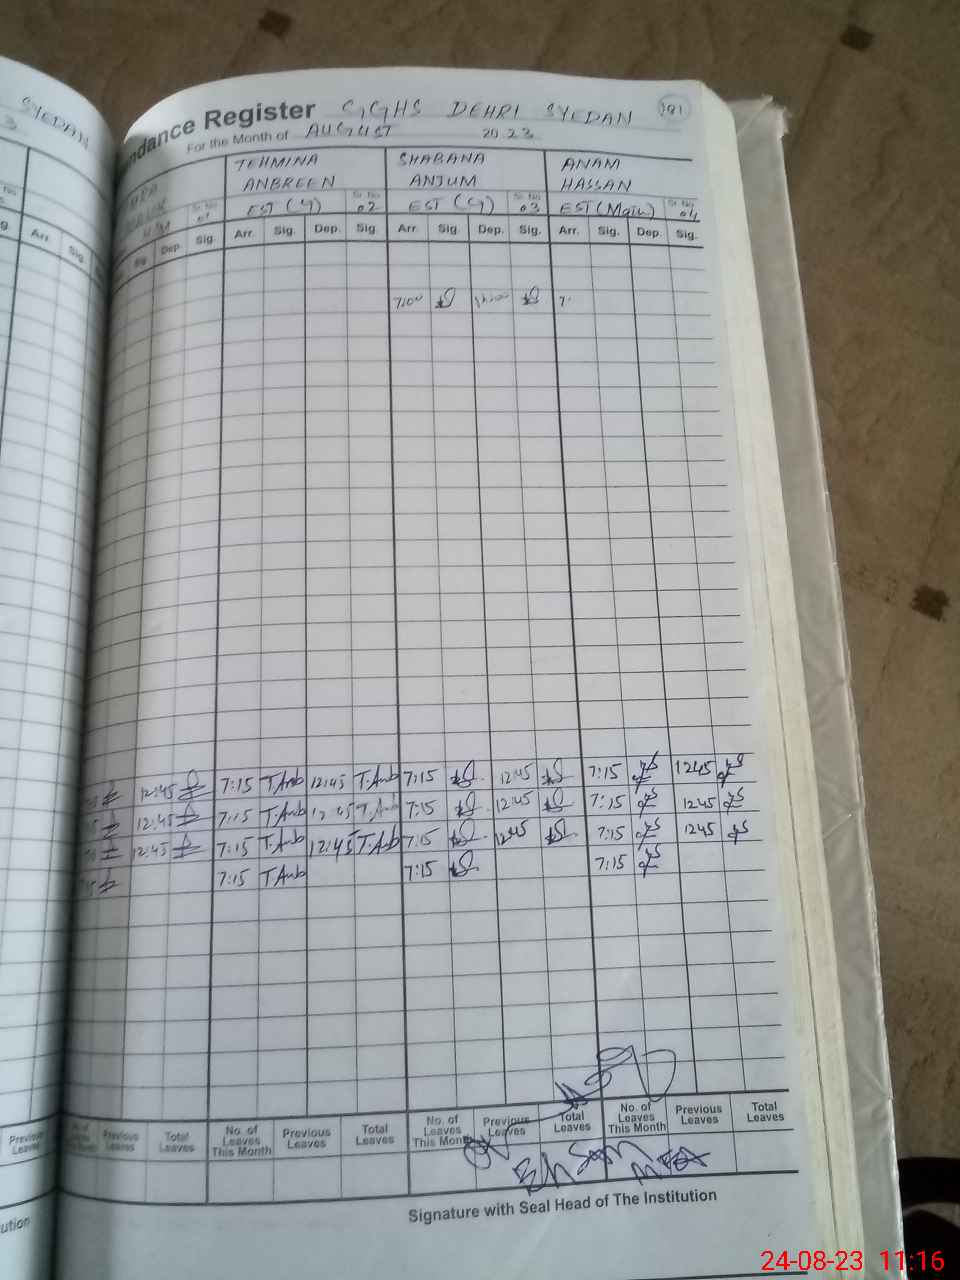 SYEDAN
Attendance Register GGHS DEHRI SYEDAN 181
For the Month of AUGUST 2023
TEHMINA SHABANA ANAM
ANBREEN ANJUM HASSAN
Sr. No. Sr. No. Sr. No. Sr. No.
01 EST (G) 02 EST (G) 03 EST (Main) 04
Arr. Sig. Sig. Dep. Sig. Arr. Sig. Dep. Sig. Arr. Sig. Dep. Sig. Arr. Sig. Dep. Sig.
7:00 12:00 7:
12:45 7:15 T.Amb 12:45 T.Amb 7:15 12:45 7:15 1245
12:45 7:15 T.Amb 12:45 T.Amb 7:15 12:45 7:15 1245
12:45 7:15 T.Amb 12:45 T.Amb 7:15 12:45 7:15 1245
7:15 T.Amb 7:15 7:15
Previous Leaves Previous Leaves Total Leaves No. of Leaves This Month Previous Leaves Total Leaves No. of Leaves This Month Previous Leaves Total Leaves No. of Leaves This Month Previous Leaves Total Leaves
Signature with Seal Head of The Institution
ution
24-08-23 11:16